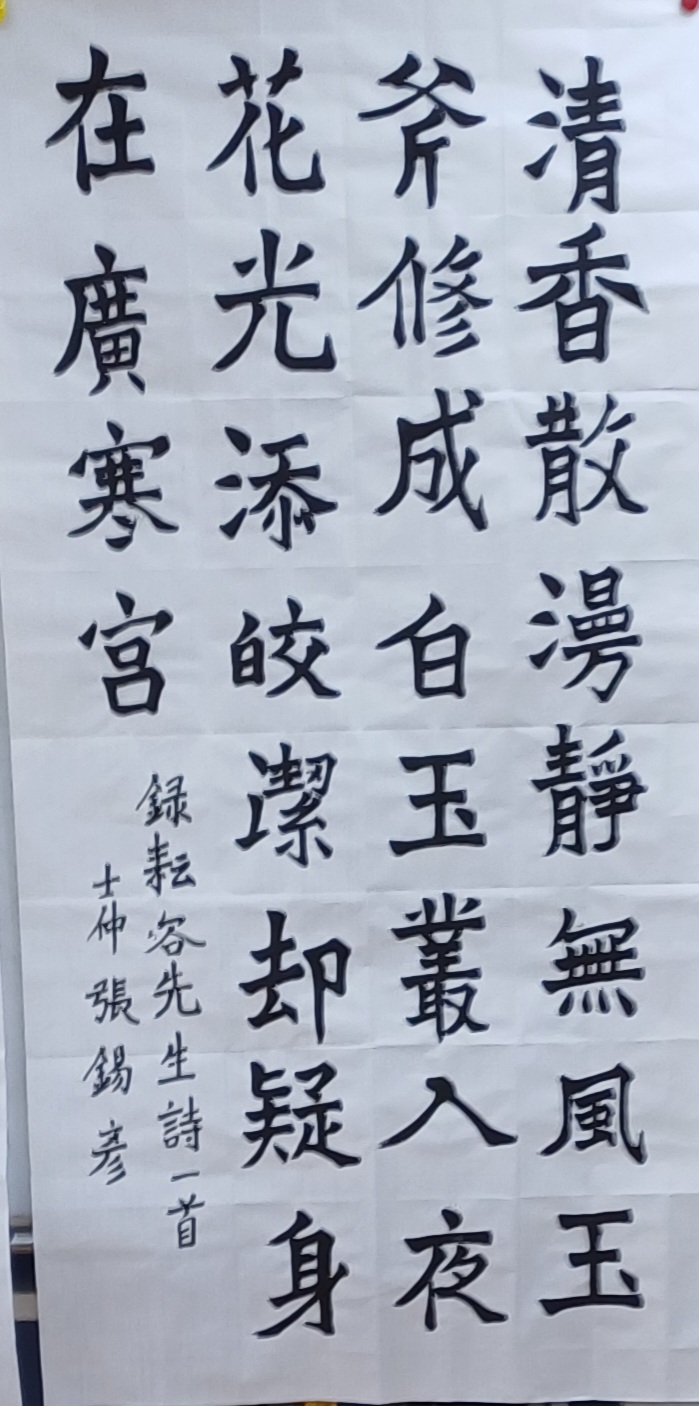 清香散漫靜無風玉
斧修成白玉叢入夜
花光添皎潔却疑身
在廣寒宮
録耘谷先生詩一首
士仲張錫彥